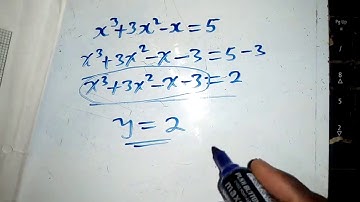 x³+3x²-x=5
x³+3x²-x-3=5-3
x³+3x²-x-3=2
y=2